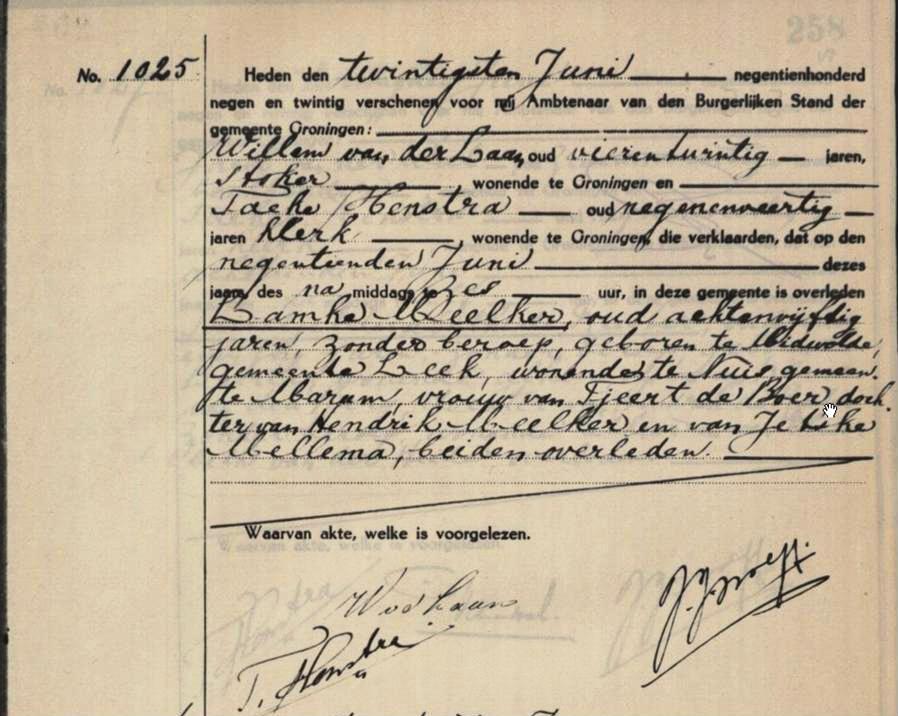 258
No. 1025 Heden den twintigsten Juni negentienhonderd
negen en twintig verschenen voor mij Ambtenaar van den Burgerlijken Stand der
gemeente Groningen:
Willem van der Laan, oud vierentwintig jaren,
Stoker, wonende te Groningen en
Taeke Henstra oud negenenveertig
jaren klerk, wonende te Groningen, die verklaarden, dat op den
negentienden Juni dezes
jaars des na middags te zes uur, in deze gemeente is overleden
Lamke Meelker, oud achtenvijftig
jaren, zonder beroep, geboren te Midwolde,
gemeente Leek, wonende te Nuis, gemeen-
te Marum, vrouw van Tjeert de Boer, doch-
ter van Hendrik Meelker en van Jeltke
Mellema, beiden overleden.
Waarvan akte, welke is voorgelezen.
WvdLaan
T. Henstra